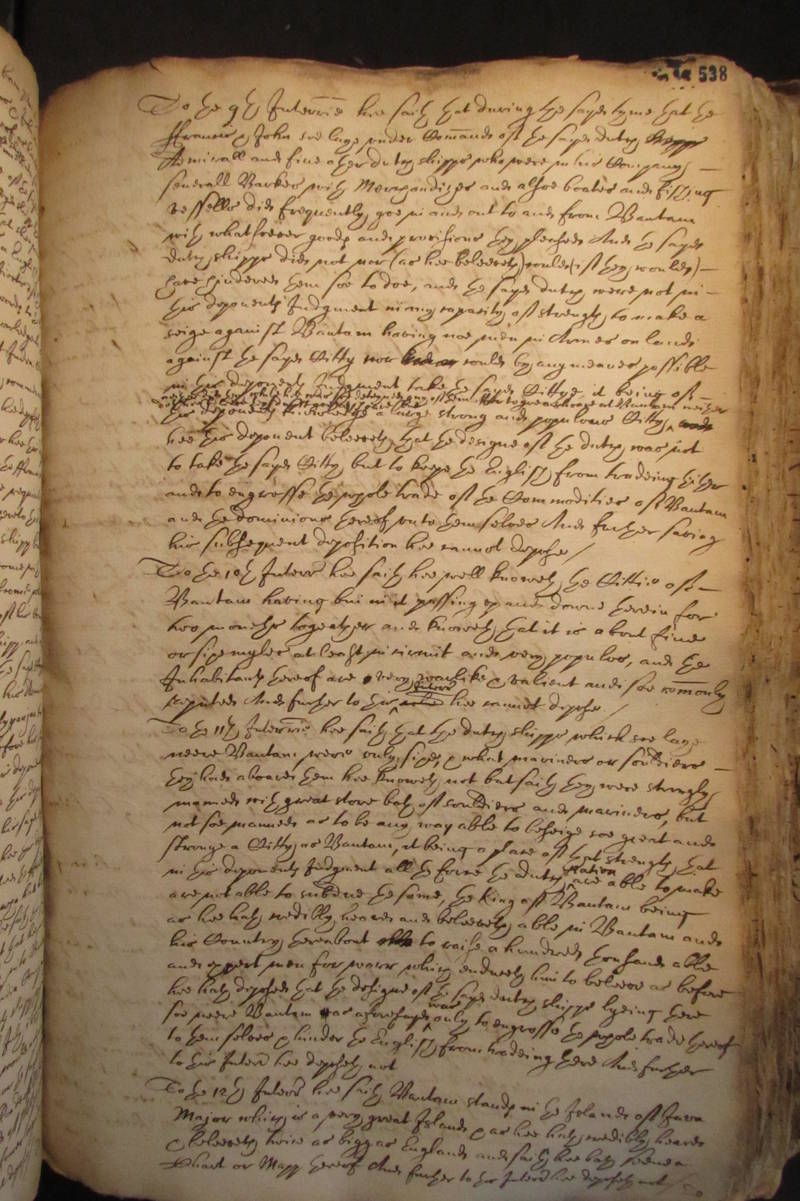 538
To the 9th Interrie hee saith that during the sayd tyme that the
ffrancis & John soe laye under Command of the sayd dutch
Admirall and five other dutch shipps who were in his Company
severall Barkes with Merchandizes and alsoe boates and fishing
vessells did frequently goe in and out to and from Bantam
with whatsoever goods and provisions they pleased And the sayd
dutch shipps did not nor (as hee beleeveth) could (if they would)
have hindered them soe to doe, and the sayd dutch were not in
this deponents Judgment in any capacity of strength to make a
seige against Bantam having noe men in Armes on land
against the sayd Citty nor could by any meanes possible
in this deponents Judgment take the sayd Cittye it being of
this deponents knowledge a large strong and populous Citty
hee this deponent beleeveth that the designe of the dutch was not
to take the sayd Citty but to keepe the English from tradeing thither
and to engrosse the whole trade of the Commodities of Bantam
and the dominions thereof unto themselves And further saving
his subsequent deposition hee cannot depose /
To the 10th Interr hee saith hee well knoweth the Cittie of
Bantam having bin in it passing up and downe therein for
two moneths together and knoweth that it is about five
or six myles at least in circuit and very populus, and the
Inhabitants thereof are very warlike & valient and soe commonly
reputed And further to this Interr hee cannot depose /
To the 11th Interrie hee saith that the dutch shipps which soe laye
neere Bantam were only sixe, & what mariners or souldiers
they had aboard them hee knoweth not but saith they were strongly
manned with great store both of souldiers and mariners, but
not soe manned as to be any way able to beseige soe great and
stronge a Citty as Bantam, it being a place of that strength that
in this deponents Judgment all the force the dutch Nation are able to make
are not able to subdue the same, the King of Bantam being
as hee hath credibly heard and beleeveth able in Bantam and
his Country thereabout to raise a hundred thousand able
and expert men for warr which induceth him to beleeve as before
hee hath deposed that the designe of the sayd dutch shipps lyeing there
soe neere Bantam as aforesayd was only to engrosse the whole trade thereof
to themselves & hinder the English from tradeing there And further
to this Interr hee deposeth not
To the 12th Interr hee saith Bantam stands in the Island of Java
Major which is a very great Island & as hee hath credibly heard
& beleeveth twice as bigg as England and saith hee hath seene a
Chart or Mapp thereof And further to this Interr hee deposeth not